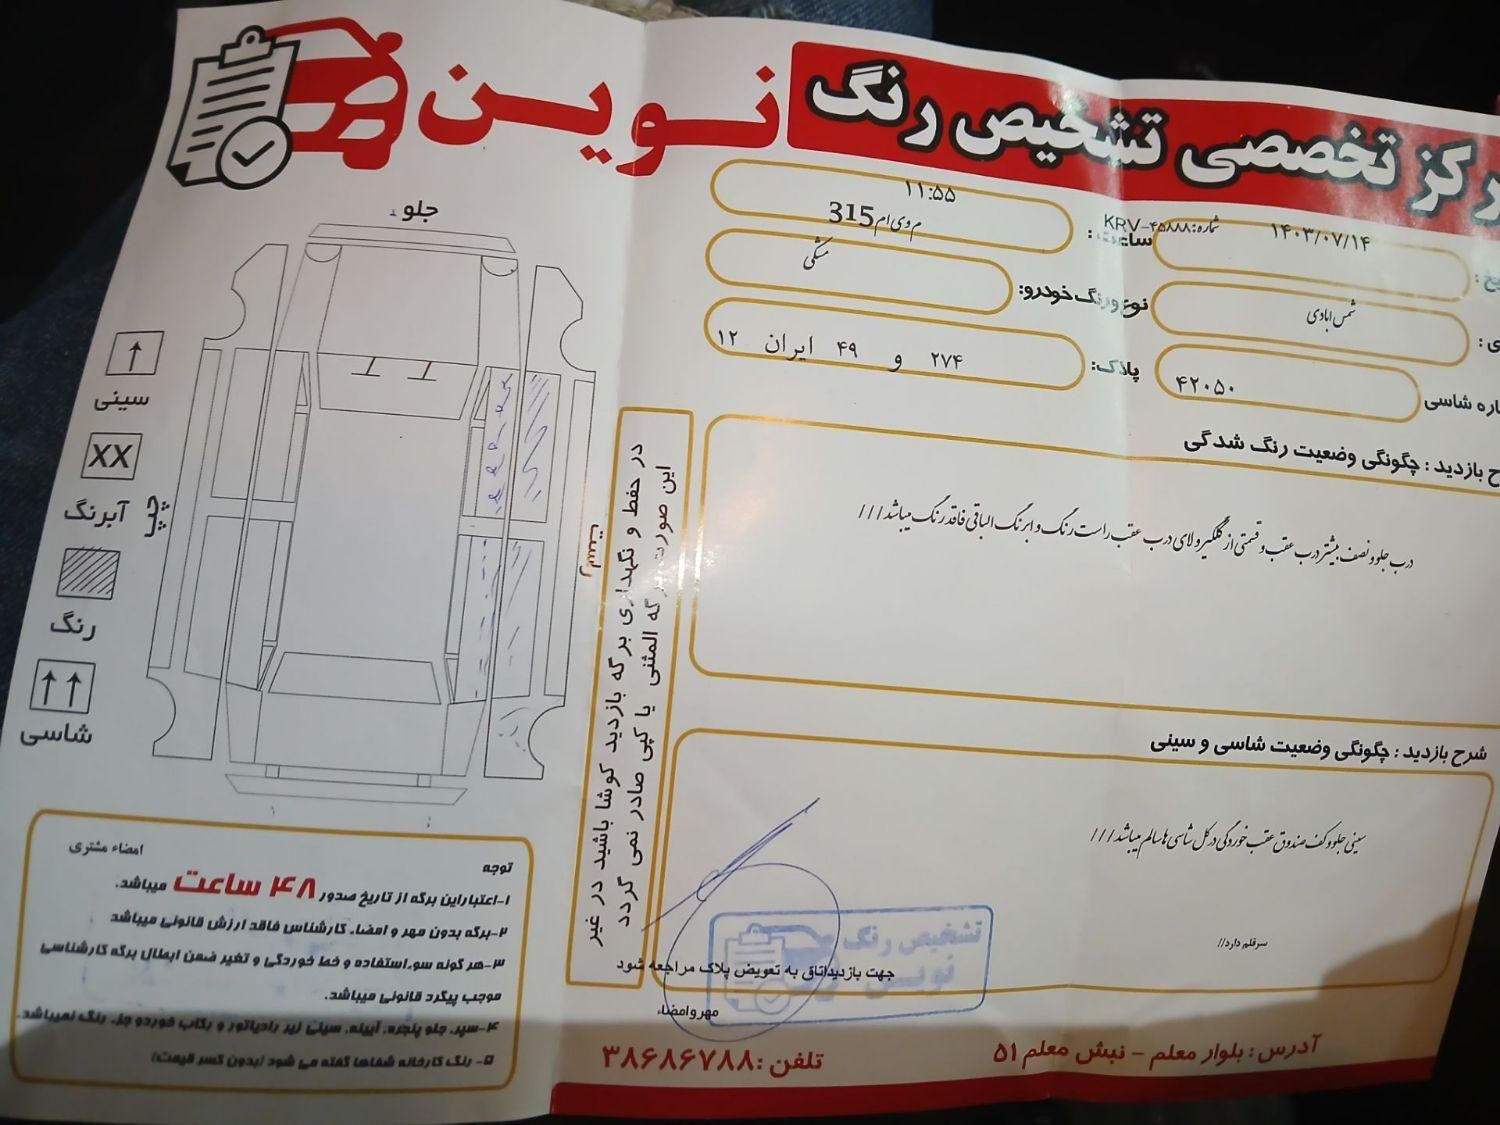 مرکز تخصصی تشخیص رنگ نوین
۱۴۰۳/۰۷/۱۴
شماره: KRV-۴۵۸۸۸
ساعت:
۱۱:۵۵
شمس ابادی
نوع ورنگ خودرو:
م وی ام 315
مشکی
شاسی
۴۲۰۵۰
پلاک:
۲۷۴ و ۴۹ ایران ۱۲
بازدید : چگونگی وضعیت رنگ شدگی
درب جلوو نصف بیشتر درب عقب و قسمتی از گلگیر و لای درب عقب راست رنگ و ابرنگ الباقی فاقد رنگ میباشد///
شرح بازدید : چگونگی وضعیت شاسی و سینی
سینی جلو و کف صندوق عقب خوردگی در کل شاسی ها سالم میباشد///
سرقلم دارد//
جهت بازدیداتاق به تعویض پلاک مراجعه شود
مهروامضاء
تشخیص رنگ
نوین
آدرس : بلوار معلم - نبش معلم ۵۱
تلفن : ۳۸۶۸۶۷۸۸
در حفظ و نگهداری برگه بازدید کوشا باشید در غیر
این صورت برگه المثنی یا کپی صادر نمی گردد
جلو
چپ
راست
سینی
XX
آبرنگ
رنگ
شاسی
امضاء مشتری
توجه
۱-اعتباراین برگه از تاریخ صدور ۴۸ ساعت میباشد.
۲-برگه بدون مهر و امضاء کارشناس فاقد ارزش قانونی میباشد
۳-هر گونه سوء استفاده و خط خوردگی و تغیر ضمن ابطال برگه کارشناسی
موجب پیگرد قانونی میباشد.
۴-سپر، جلو پنجره، آیینه، سینی زیر رادیاتور و رکاب خوردو جزء رنگ نمیباشد.
۵- رنگ کارخانه شفاها گفته می شود (بدون کسر قیمت)